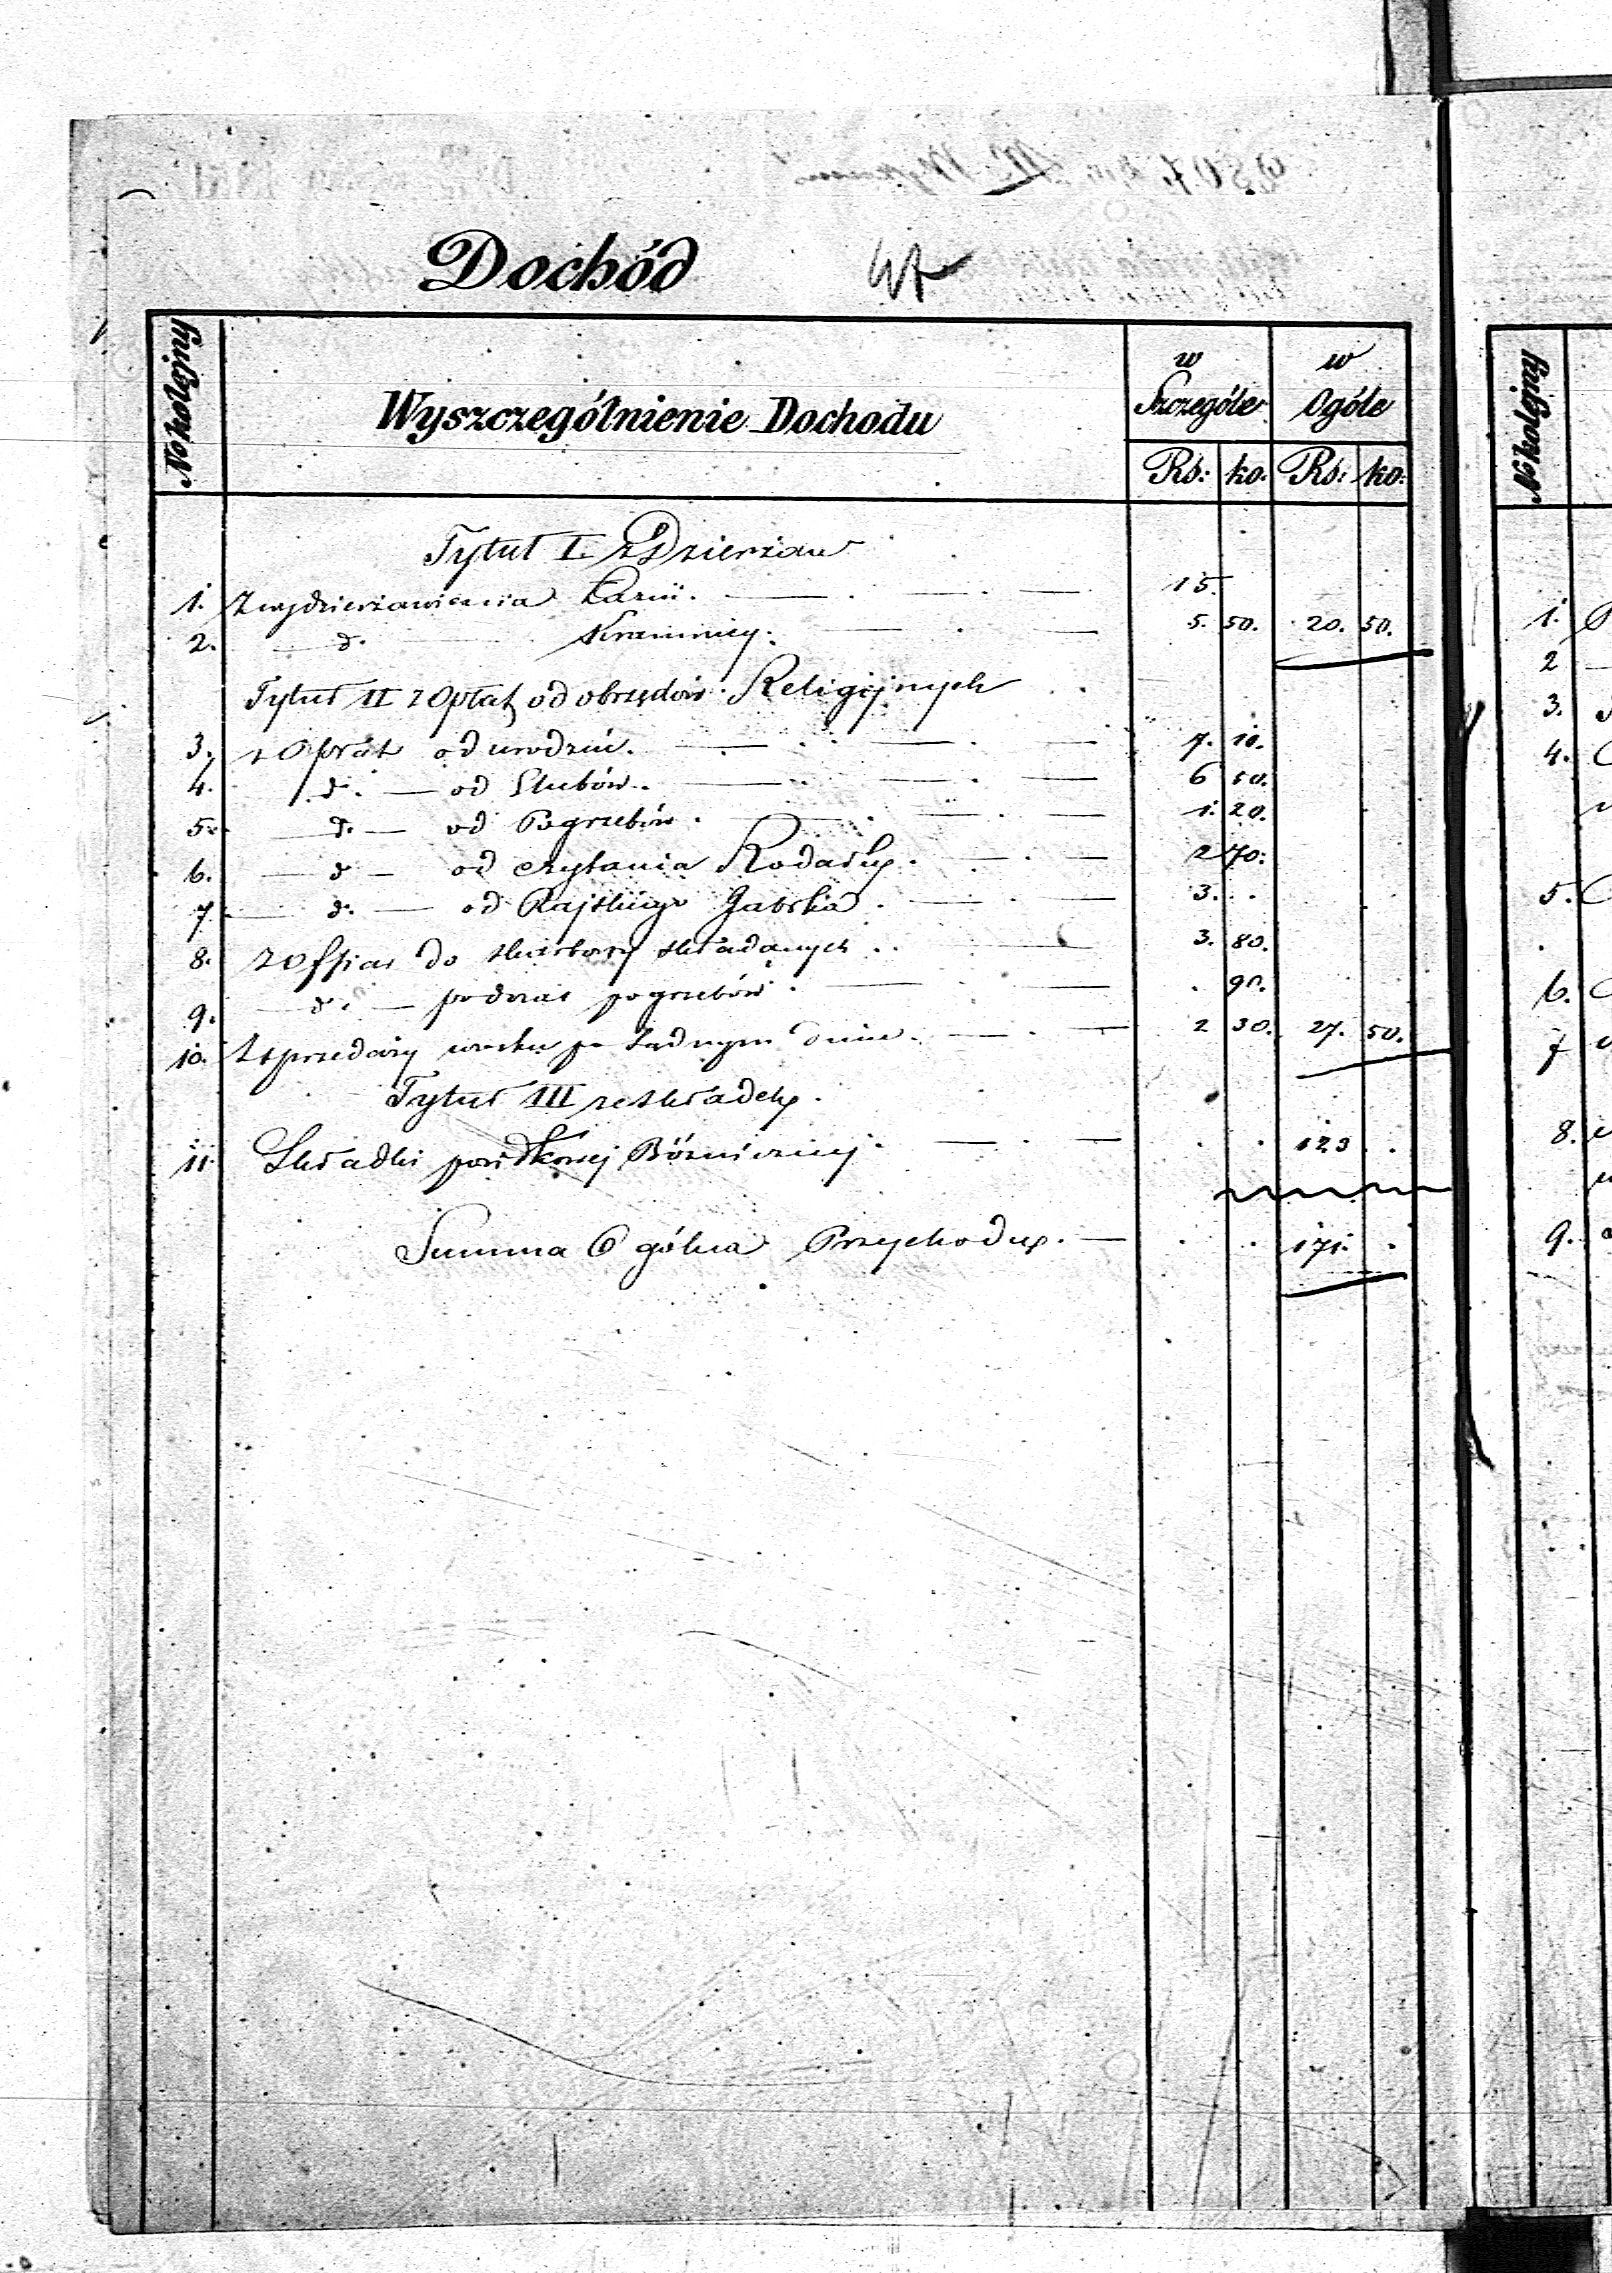 Dochód
No kolejny
Wyszczególnienie Dochodu
w Szczególe
w Ogóle
Rs: ko. Rs: ko:
Tytuł I. z Dzierżaw
1. Z wydzierżawienia Łazni. 15.
2. d. Kramnicy. 5. 50. 20. 50.
Tytuł II z Opłat od obrzędów Religijnych
3. z Opłat od urodzin. 7. 10.
4. d. od Slubów. 6 50.
5. d. od Pogrzebów. 1. 20.
6. d od czytania Rodałły. 2 70.
7 d. od Rajskiego Jabłka. 3.
8. z offiar do skarbony składanych 3. 80.
9. d. podczas pogrzebów. 90.
10. Z sprzedaży wosku po Sądnym dniu. 2 30. 27. 50.
Tytuł III ze składek.
11. Składki Bóżnicznej. 123
Summa Ogólna Przychodu. 171.
No kolejny
1.
2
3.
4.
5.
6.
7
8.
9.